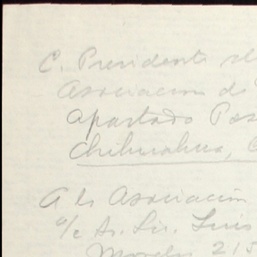 C. Presidente de
Asociacion de
Apartado Pos
Chihuahua, C
A la Asociación
a/c Sr. Lic. Luis
Morelos 215